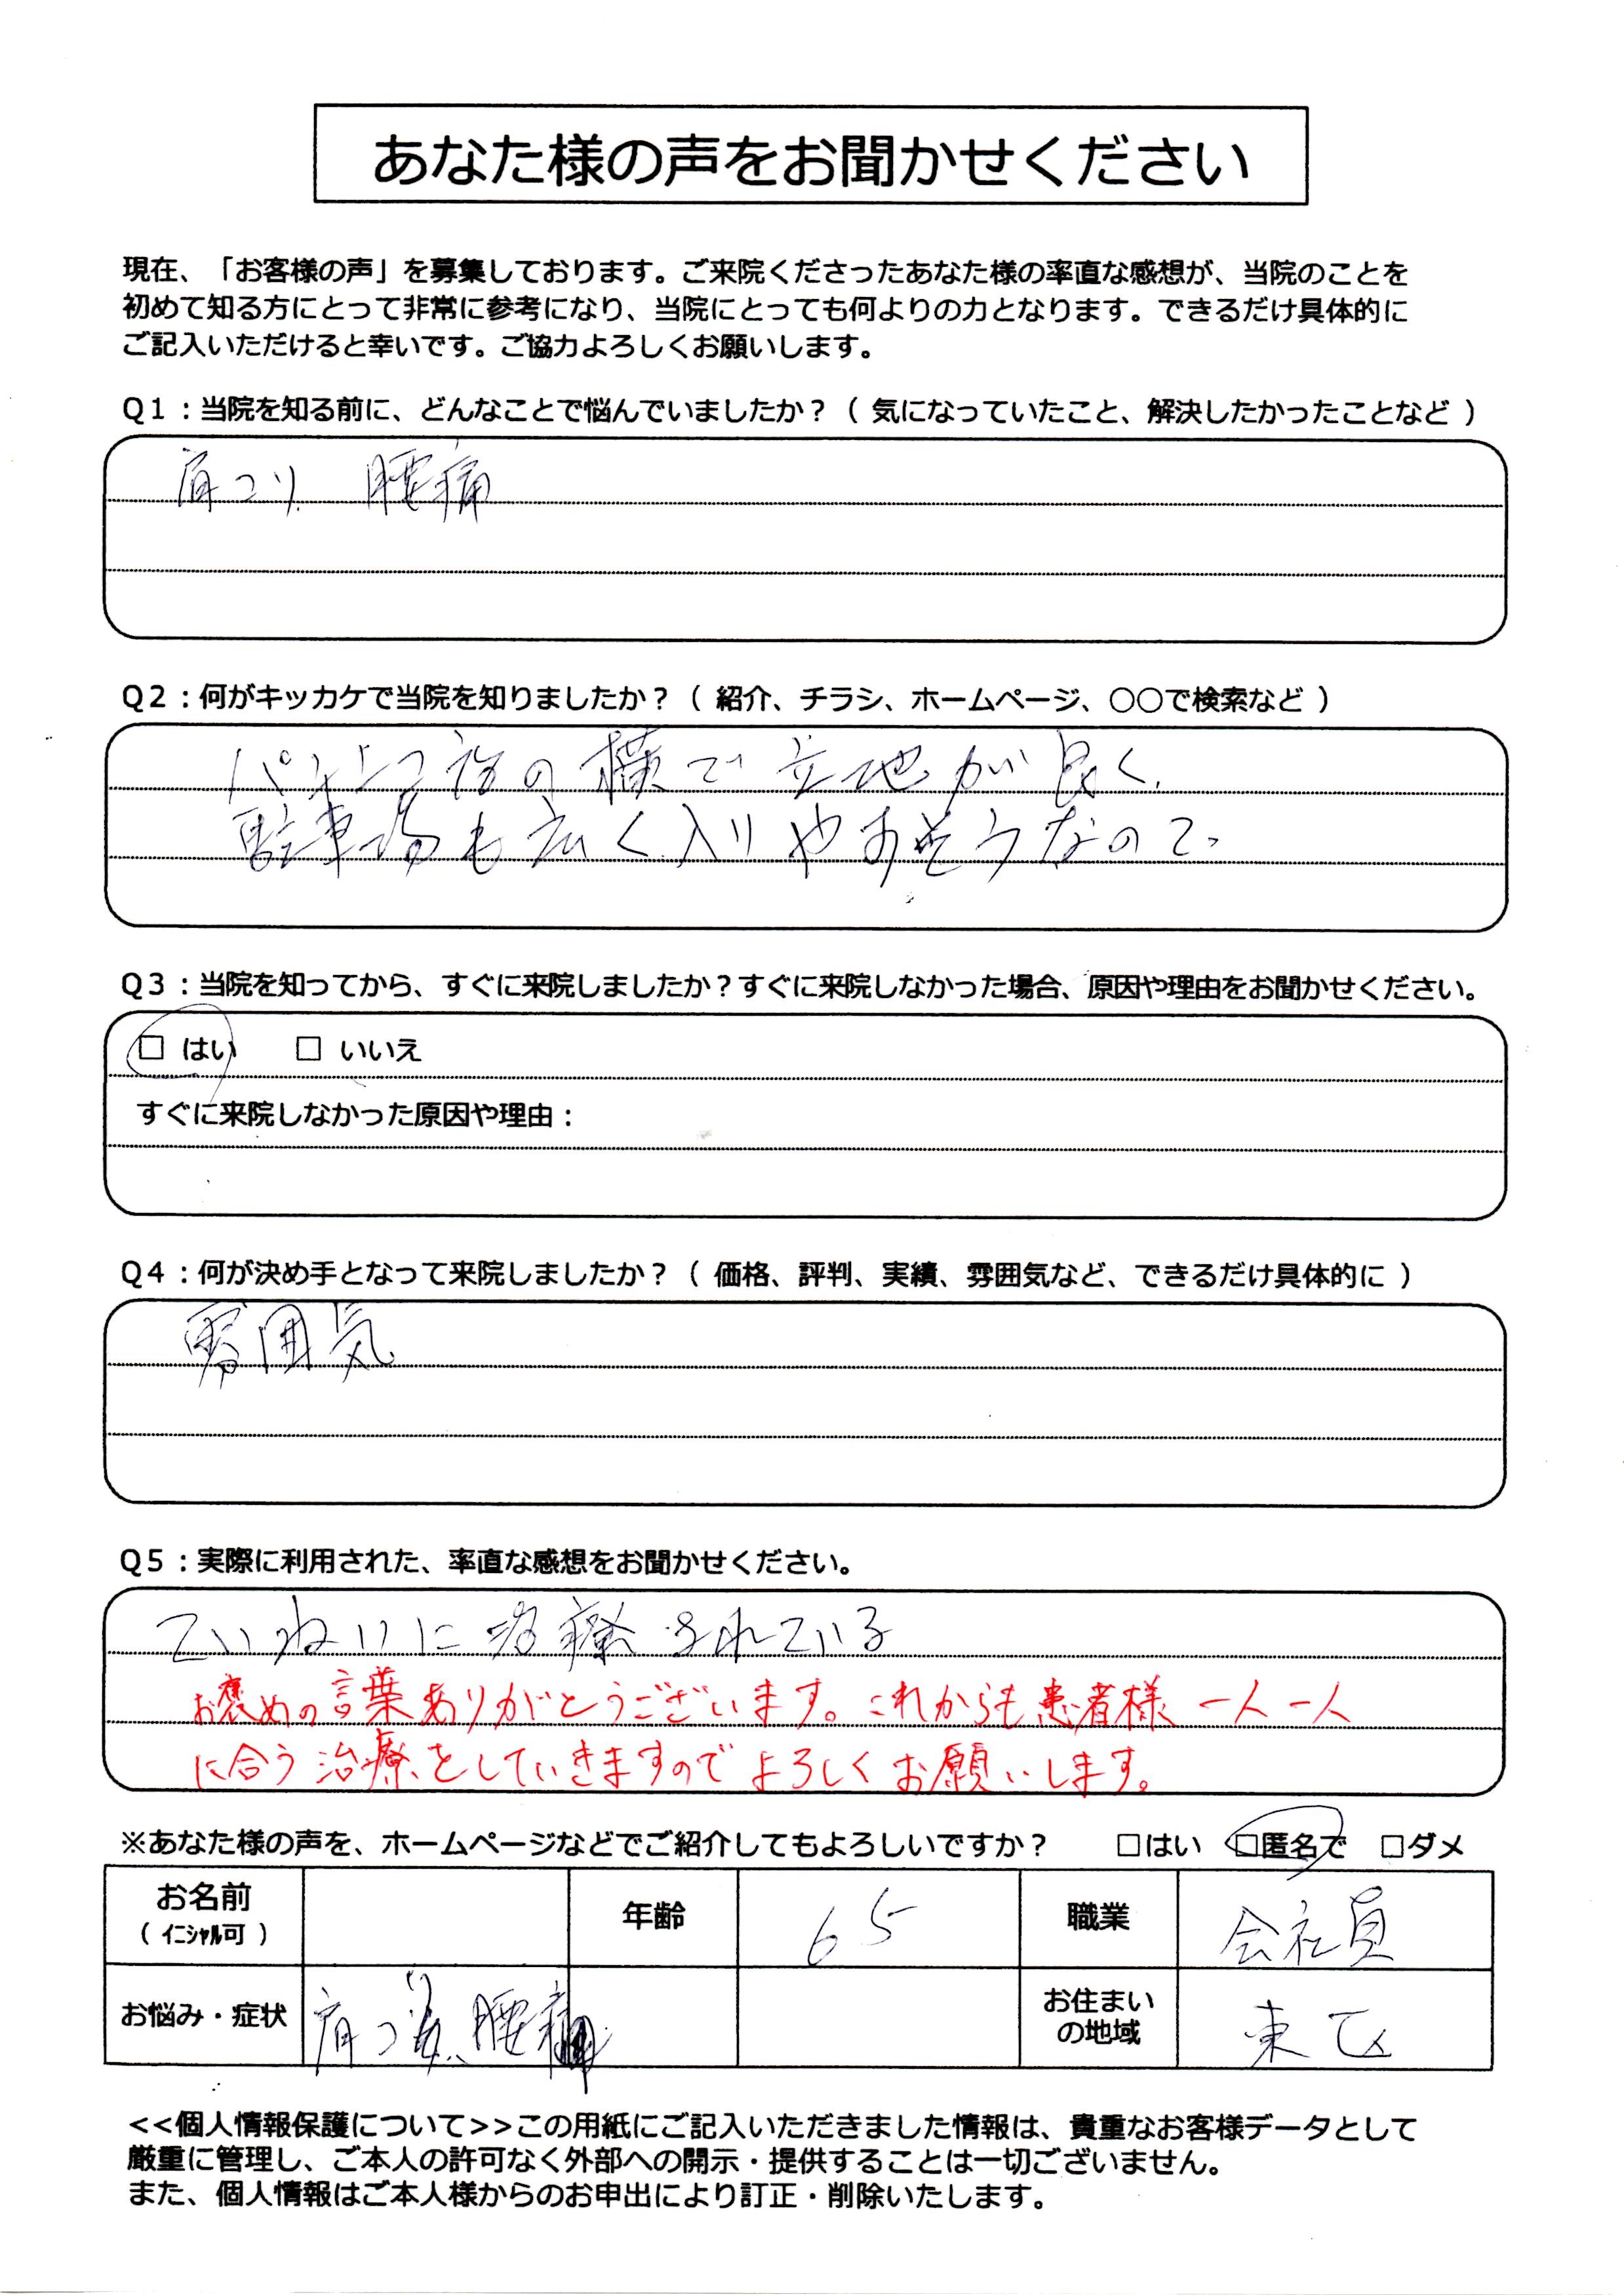 あなた様の声をお聞かせください
現在、「お客様の声」を募集しております。ご来院くださったあなた様の率直な感想が、当院のことを
初めて知る方にとって非常に参考になり、当院にとっても何よりの力となります。できるだけ具体的に
ご記入いただけると幸いです。ご協力よろしくお願いします。
Q1：当院を知る前に、どんなことで悩んでいましたか？（ 気になっていたこと、解決したかったことなど ）
肩こり 腰痛
Q2：何がキッカケで当院を知りましたか？（ 紹介、チラシ、ホームページ、○○で検索など ）
の横で立地が良く、
駐車場も広く入りやすそうなので
Q3：当院を知ってから、すぐに来院しましたか？すぐに来院しなかった場合、原因や理由をお聞かせください。
□ はい □ いいえ
すぐに来院しなかった原因や理由：
Q4：何が決め手となって来院しましたか？（ 価格、評判、実績、雰囲気など、できるだけ具体的に ）
雰囲気
Q5：実際に利用された、率直な感想をお聞かせください。
ていねいに治療されている
お褒めの言葉ありがとうございます。これからも患者様一人一人
に合う治療をしていきますのでよろしくお願いします。
※あなた様の声を、ホームページなどでご紹介してもよろしいですか？ □はい □匿名で □ダメ
お名前 （イニシャル可） 年齢 65 職業 会社員
お悩み・症状 肩こり 腰痛 お住まいの地域 東区
<<個人情報保護について>>この用紙にご記入いただきました情報は、貴重なお客様データとして
厳重に管理し、ご本人の許可なく外部への開示・提供することは一切ございません。
また、個人情報はご本人様からのお申出により訂正・削除いたします。